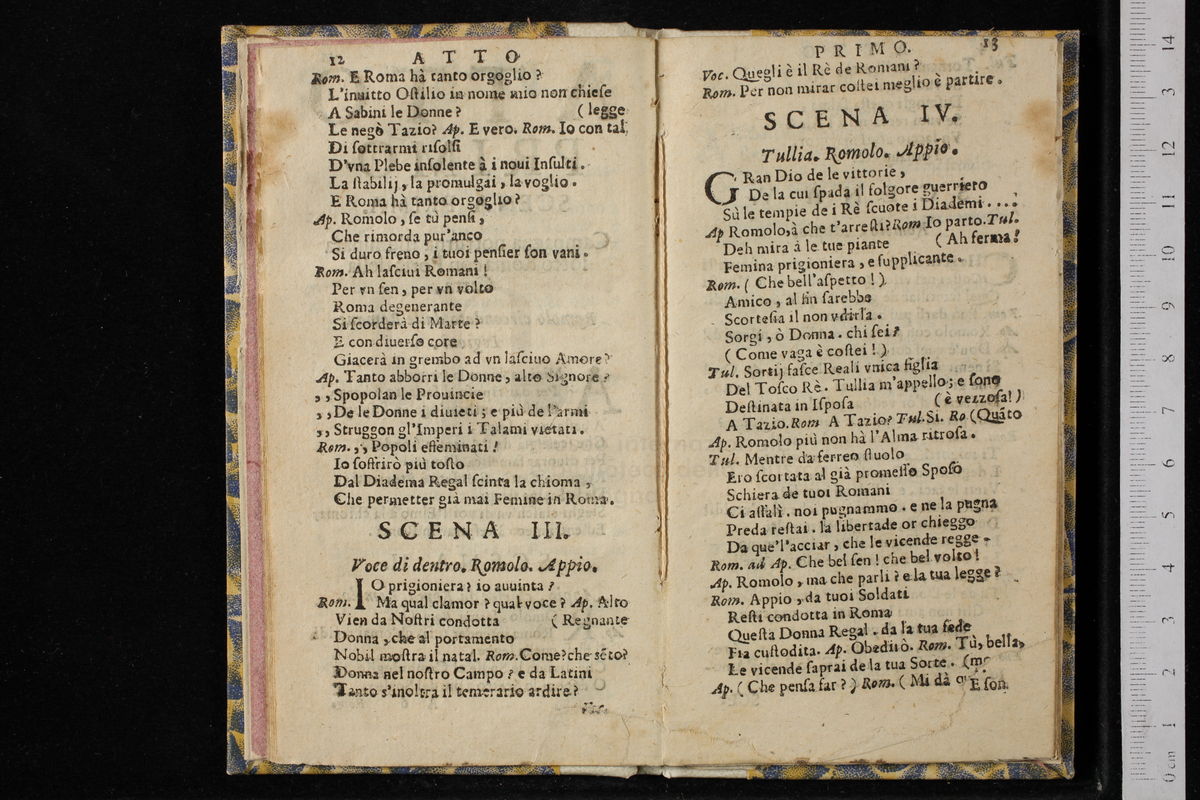 12 ATTO
Rom. E Roma hà tanto orgoglio?
L'inuitto Oſtilio in nome mio non chieſe
A Sabini le Donne? (legge
Le negò Tazio? Ap. E vero. Rom. Io con tal
Di ſottrarmi riſolſi
D'vna Plebe inſolente à i noui Inſulti.
La ſtabilij, la promulgai, la voglio.
E Roma hà tanto orgoglio?
Ap. Romolo, ſe tù penſi,
Che rimorda pur'anco
Si duro freno, i tuoi penſier ſon vani.
Rom. Ah laſciui Romani!
Per vn ſen, per vn volto
Roma degenerante
Si ſcorderà di Marte?
E con diuerſo core
Giacerà in grembo ad vn laſciuo Amore?
Ap. Tanto abborri le Donne, alto Signore?
,, Spopolan le Prouincie
,, De le Donne i diuieti; e più de l'armi
,, Struggon gl'Imperi i Talami vietati.
Rom. ,, Popoli effeminati!
Io ſoffrirò più toſto
Dal Diadema Regal ſcinta la chioma,
Che permetter già mai Femine in Roma.
SCENA III.
Voce di dentro. Romolo. Appio.
IO prigioniera? io auuinta?
Rom. Ma qual clamor? qual voce? Ap. Alto
Vien da Noſtri condotta (Regnante
Donna, che al portamento
Nobil moſtra il natal. Rom. Come? che sẽto?
Donna nel noſtro Campo? e da Latini
Tanto s'inoltra il temerario ardire?
Voc.
PRIMO. 13
Voc. Quegli è il Rè de Romani?
Rom. Per non mirar coſtei meglio è partire.
SCENA IV.
Tullia. Romolo. Appio.
GRan Dio de le vittorie,
De la cui ſpada il folgore guerriero
Sù le tempie de i Rè ſcuote i Diademi....
Ap Romolo, à che t'arreſti? Rom Io parto. Tul.
Deh mira à le tue piante (Ah ferma!
Femina prigioniera, e ſupplicante.
Rom. (Che bell'aſpetto!)
Amico, al fin ſarebbe
Scorteſia il non vdirla.
Sorgi, ò Donna. chi ſei?
(Come vaga è coſtei!)
Tul. Sortij faſce Reali vnica figlia
Del Toſco Rè. Tullia m'appello; e ſono
Deſtinata in Iſpoſa (è vezzoſa!)
A Tazio. Rom A Tazio? Tul. Si. Ro (Quãto
Ap. Romolo più non hà l'Alma ritroſa.
Tul. Mentre da ferreo ſtuolo
Ero ſcortata al già promeſſo Spoſo
Schiera de tuoi Romani
Ci aſſalì. noi pugnammo. e ne la pugna
Preda reſtai. la libertade or chieggo
Da que'l'acciar, che le vicende regge.
Rom. ad Ap. Che bel ſen! che bel volto!
Ap. Romolo, ma che parli? e la tua legge?
Rom. Appio, da tuoi Soldati
Reſti condotta in Roma
Queſta Donna Regal. da la tua fede
Fia cuſtodita. Ap. Obedirò. Rom. Tù, bella,
Le vicende ſaprai de la tua Sorte.
Ap. (Che penſa far?) Rom. (Mi dà
E ſon